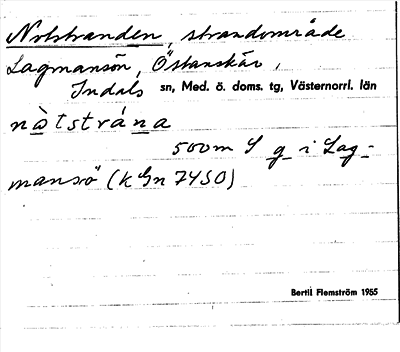 Notstranden, strandområde
Lagmansön, Östanskär,
Indals sn, Med. ö. doms. tg, Västernorrl. län
nàtstrána
500 m S g i Lag-
mansö (k Gn 7450)
Bertil Flemström 1965